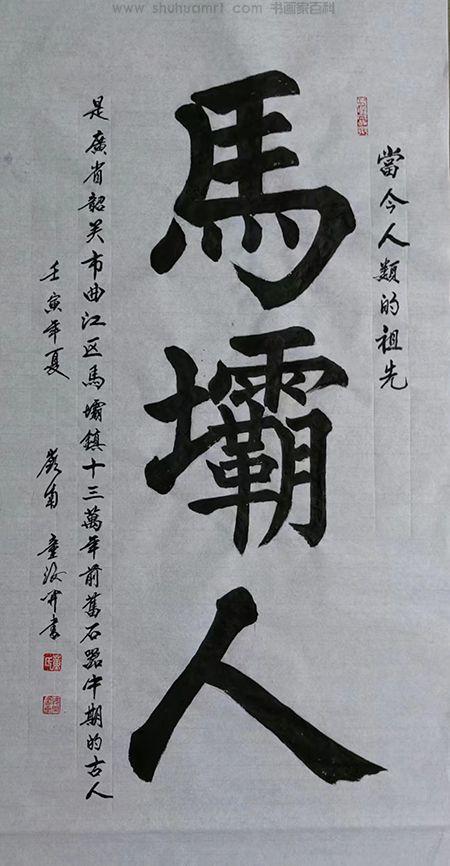 www.shuhuamrt.com 书画家百科
當今人類的祖先
馬壩人
是廣省韶关市曲江区馬壩鎮十三萬年前舊石器中期的古人
壬寅年夏 嶺南 童汝年書